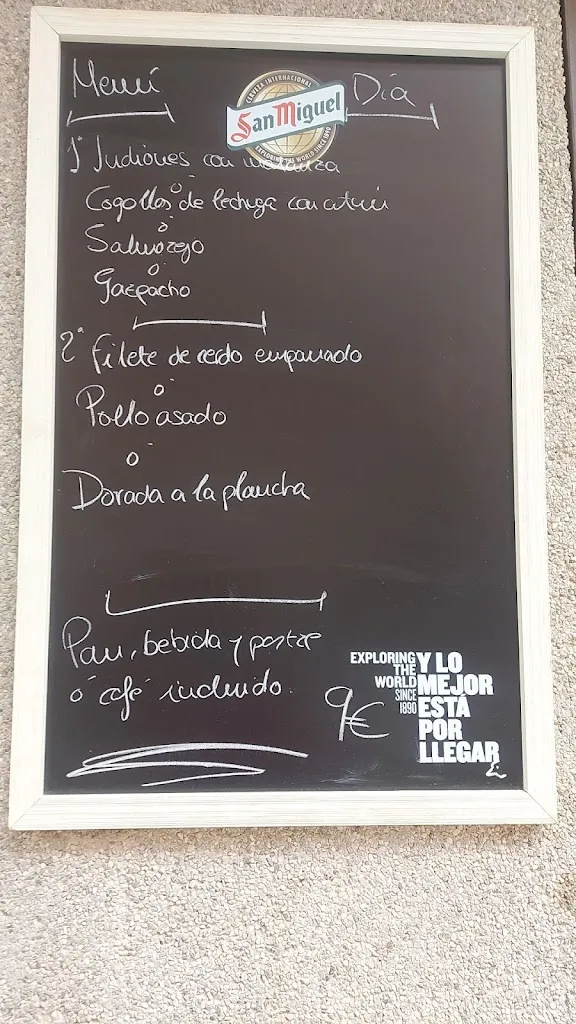 Menú Día
CERVEZA INTERNACIONAL
San Miguel
EXPLORING THE WORLD SINCE 1890
1º Judiones con matanza
o
Cogollos de lechuga con atún
o
Salmorejo
o
Gazpacho
2º Filete de cerdo empanado
o
Pollo asado
o
Dorada a la plancha
Pan, bebida y postre
ó café incluido.
9€
EXPLORING
THE
WORLD
SINCE
1890
Y LO
MEJOR
ESTÁ
POR
LLEGAR